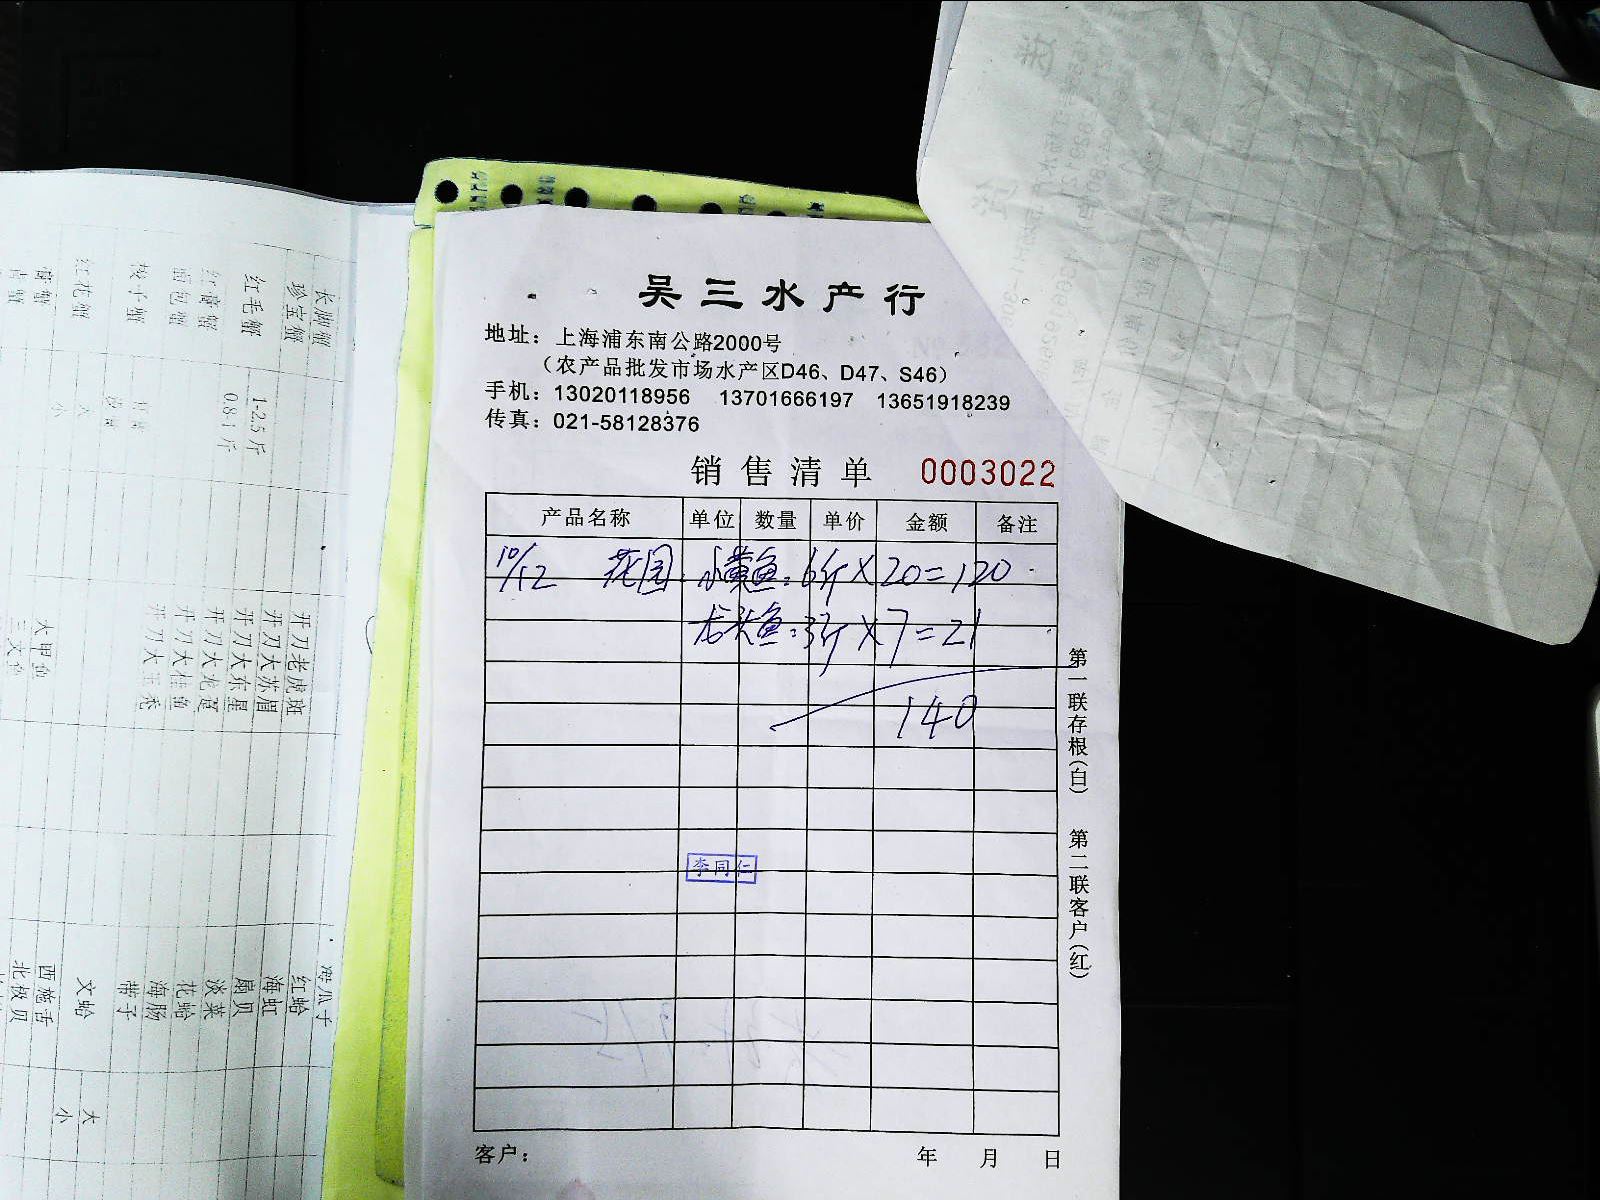 吴三水产行
地址：上海浦东南公路2000号
（农产品批发市场水产区D46、D47、S46）
手机：13020118956 13701666197 13651918239
传真：021-58128376
销售清单 0003022
产品名称 单位 数量 单价 金额 备注
10/12 花园：小黄鱼：6斤×20=120
龙头鱼：3斤×7=21
140
李同仁
第一联存根(白) 第二联客户(红)
客户： 年 月 日
长脚蟹
珍宝蟹
红毛蟹 1-2.5斤
红膏蟹 0.8-1斤
面包蟹
梭子蟹
红花蟹 大
小
开刀老虎斑
开刀大苏眉
开刀大东星
开刀大龙趸
开刀大桂鱼
开刀大王秃
大甲鱼
三文鱼
海瓜子
红蛤
海虹
扇贝
淡菜
花蛤
海肠
带子
文蛤 大
小
西施舌
北极贝